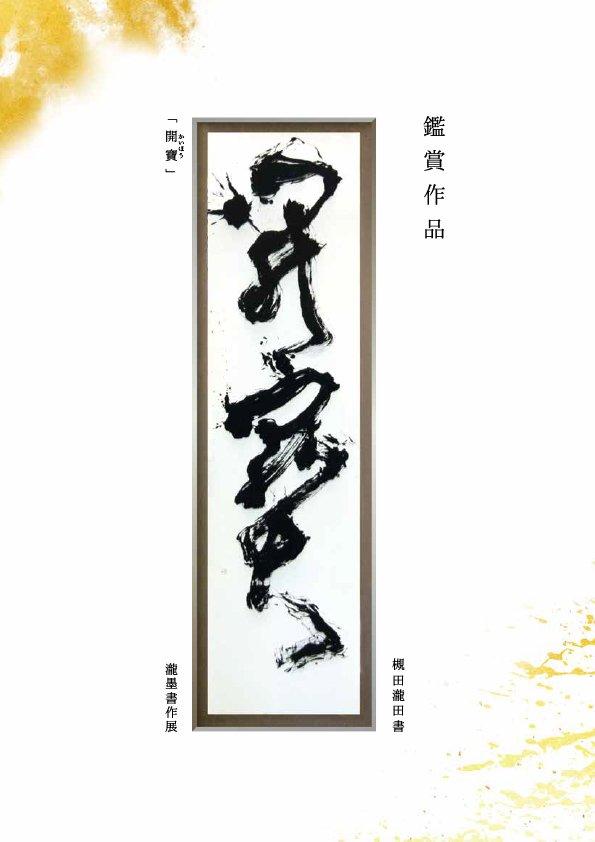 鑑賞作品
槻田瀧田書
開寶
「開寶」
かいほう
瀧墨書作展